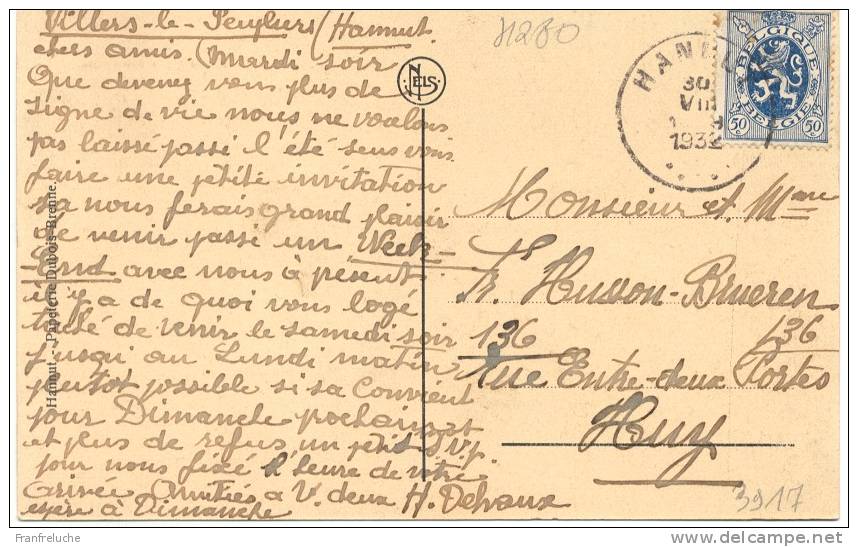 Villers-le-Peuplers (Hannut
chers amis. (Mardi soir
Que devenez vous plus de
signe de vie nous ne voulons
pas laissé passé l'été sens vous
faire une petite invitation
sa nous ferais grand plaisir
de venir passé un Week-
End avec nous à présent
il y a de quoi vous logé
taché de venir le samedi soir
jusqu'au Lundi matin
plutot possible si sa convient
pour Dimanche prochain et
et plus de refus un petit
pour nous fixé l'heure de votre
arrivée Amitiés a V. deux H. Delvaux
espère à Dimanche
Hannut. - Papeterie Dubois-Brenne.
NELS
H280
HANNUT
30
VIII
1932
BELGIQUE
BELGIE
50 50
Monsieur et Mme
Fr. Husson-Brueren
136 136
Rue Entre-deux Portes
Huy
3917
Franfreluche
www.delcampe.net